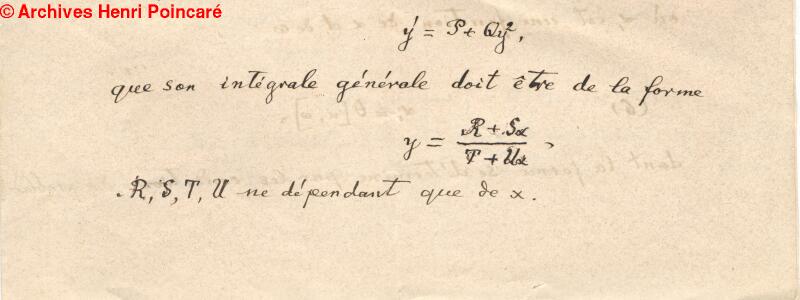 © Archives Henri Poincaré
y' = P + Qy²,
que son intégrale générale doit être de la forme
y = (R + Sα)/(T + Uα),
R, S, T, U ne dépendant que de x.